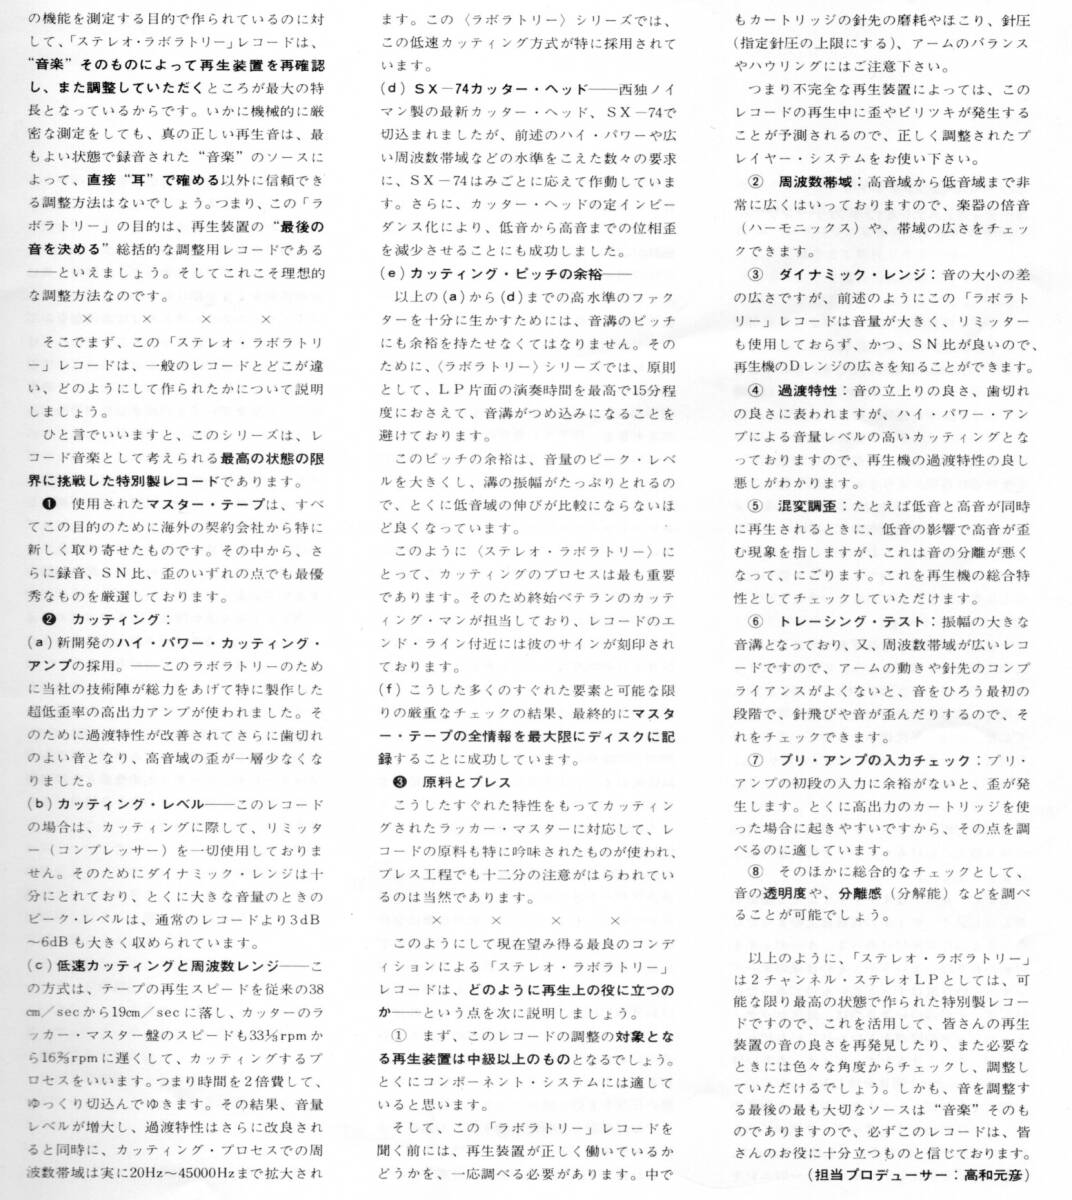 の機能を測定する目的で作られているのに対
して、「ステレオ・ラボラトリー」レコードは、
“音楽”そのものによって再生装置を再確認
し、また調整していただくところが最大の特
長となっているからです。いかに機械的に厳
密な測定をしても、真の正しい再生音は、最
もよい状態で録音された“音楽”のソースに
よって、直接“耳”で確める以外に信頼でき
る調整方法はないでしょう。つまり、この「ラ
ボラトリー」の目的は、再生装置の“最後の
音を決める”総括的な調整用レコードである
――といえましょう。そしてこれこそ理想的
な調整方法なのです。
× × × ×
そこでまず、この「ステレオ・ラボラトリ
ー」レコードは、一般のレコードとどこが違
い、どのようにして作られたかについて説明
しましょう。
ひと言でいいますと、このシリーズは、レ
コード音楽として考えられる最高の状態の限
界に挑戦した特別製レコードであります。
❶ 使用されたマスター・テープは、すべ
てこの目的のために海外の契約会社から特に
新しく取り寄せたものです。その中から、さ
らに録音、SN比、歪のいずれの点でも最優
秀なものを厳選しております。
❷ カッティング：
(a)新開発のハイ・パワー・カッティング・
アンプの採用。――このラボラトリーのため
に当社の技術陣が総力をあげて特に製作した
超低歪率の高出力アンプが使われました。そ
のために過渡特性が改善されてさらに歯切れ
のよい音となり、高音域の歪が一層少なくな
りました。
(b)カッティング・レベル――このレコード
の場合は、カッティングに際して、リミッタ
ー（コンプレッサー）を一切使用しておりま
せん。そのためにダイナミック・レンジは十
分にとれており、とくに大きな音量のときの
ピーク・レベルは、通常のレコードより3dB
～6dBも大きく収められています。
(c)低速カッティングと周波数レンジ――こ
の方式は、テープの再生スピードを従来の38
cm／secから19cm／secに落し、カッターのラ
ッカー・マスター盤のスピードも33⅓rpmか
ら16⅔rpmに遅くして、カッティングするプ
ロセスをいいます。つまり時間を2倍費して、
ゆっくり切込んでゆきます。その結果、音量
レベルが増大し、過渡特性はさらに改良され
ると同時に、カッティング・プロセスでの周
波数帯域は実に20Hz～45000Hzまで拡大され
ます。この〈ラボラトリー〉シリーズでは、
この低速カッティング方式が特に採用されて
います。
(d) SX－74カッター・ヘッド――西独ノイ
マン製の最新カッター・ヘッド、SX－74で
切込まれましたが、前述のハイ・パワーや広
い周波数帯域などの水準をこえた数々の要求
に、SX－74はみごとに応えて作動していま
す。さらに、カッター・ヘッドの定インピー
ダンス化により、低音から高音までの位相歪
を減少させることにも成功しました。
(e)カッティング・ピッチの余裕――
以上の(a)から(d)までの高水準のファク
ターを十分に生かすためには、音溝のピッチ
にも余裕を持たせなくてはなりません。その
ために、〈ラボラトリー〉シリーズでは、原則
として、LP片面の演奏時間を最高で15分程
度におさえて、音溝がつめ込みになることを
避けております。
このピッチの余裕は、音量のピーク・レベ
ルを大きくし、溝の振幅がたっぷりとれるの
で、とくに低音域の伸びが比較にならないほ
ど良くなっています。
このように〈ステレオ・ラボラトリー〉に
とって、カッティングのプロセスは最も重要
であります。そのため終始ベテランのカッテ
ィング・マンが担当しており、レコードのエ
ンド・ライン付近には彼のサインが刻印され
ております。
(f)こうした多くのすぐれた要素と可能な限
りの厳重なチェックの結果、最終的にマスタ
ー・テープの全情報を最大限にディスクに記
録することに成功しています。
❸ 原料とプレス
こうしたすぐれた特性をもってカッティン
グされたラッカー・マスターに対応して、レ
コードの原料も特に吟味されたものが使われ、
プレス工程でも十二分の注意がはらわれてい
るのは当然であります。
× × × ×
このようにして現在望み得る最良のコンデ
ィションによる「ステレオ・ラボラトリー」
レコードは、どのように再生上の役に立つの
か――という点を次に説明しましょう。
① まず、このレコードの調整の対象とな
る再生装置は中級以上のものとなるでしょう。
とくにコンポーネント・システムには適して
いると思います。
そして、この「ラボラトリー」レコードを
聞く前には、再生装置が正しく働いているか
どうかを、一応調べる必要があります。中で
もカートリッジの針先の磨耗やほこり、針圧
(指定針圧の上限にする)、アームのバランス
やハウリングにはご注意下さい。
つまり不完全な再生装置によっては、この
レコードの再生中に歪やビリツキが発生する
ことが予測されるので、正しく調整されたプ
レイヤー・システムをお使い下さい。
② 周波数帯域：高音域から低音域まで非
常に広くはいっておりますので、楽器の倍音
（ハーモニックス）や、帯域の広さをチェッ
クできます。
③ ダイナミック・レンジ：音の大小の差
の広さですが、前述のようにこの「ラボラト
リー」レコードは音量が大きく、リミッター
も使用しておらず、かつ、SN比が良いので、
再生機のDレンジの広さを知ることができます。
④ 過渡特性：音の立上りの良さ、歯切れ
の良さに表われますが、ハイ・パワー・アン
プによる音量レベルの高いカッティングとな
っておりますので、再生機の過渡特性の良し
悪しがわかります。
⑤ 混変調歪：たとえば低音と高音が同時
に再生されるときに、低音の影響で高音が歪
む現象を指しますが、これは音の分離が悪く
なって、にごります。これを再生機の総合特
性としてチェックしていただけます。
⑥ トレーシング・テスト：振幅の大きな
音溝となっており、又、周波数帯域が広いレコ
ードですので、アームの動きや針先のコンプ
ライアンスがよくないと、音をひろう最初の
段階で、針飛びや音が歪んだりするので、そ
れをチェックできます。
⑦ プリ・アンプの入力チェック：プリ・
アンプの初段の入力に余裕がないと、歪が発
生します。とくに高出力のカートリッジを使
った場合に起きやすいですから、その点を調
べるのに適しています。
⑧ そのほかに総合的なチェックとして、
音の透明度や、分離感（分解能）などを調べ
ることが可能でしょう。
以上のように、「ステレオ・ラボラトリー」
は2チャンネル・ステレオLPとしては、可
能な限り最高の状態で作られた特別製レコー
ドですので、これを活用して、皆さんの再生
装置の音の良さを再発見したり、また必要な
ときには色々な角度からチェックし、調整し
ていただけるでしょう。しかも、音を調整す
る最後の最も大切なソースは“音楽”そのも
のでありますので、必ずこのレコードは、皆
さんのお役に十分立つものと信じております。
(担当プロデューサー：高和元彦)